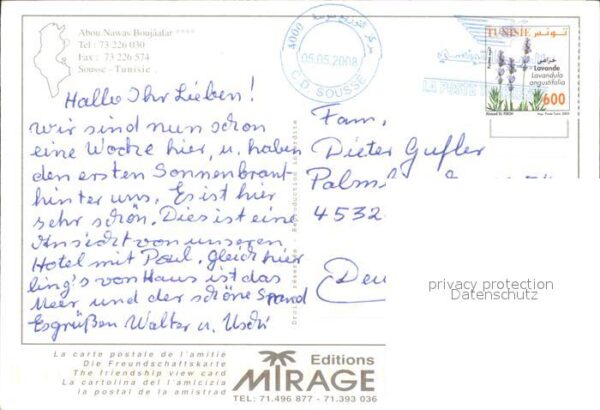 Abou Nawas Boujâafar ****
Tel : 73 226 030
Fax : 73 226 574
Sousse - Tunisie
4000
05.05.2008
C.D. SOUSSE
LA POSTE
TUNISIE تونس
خزامى
Lavande
Lavandula
angustifolia
600
Hallo Ihr Lieben!
Wir sind nun schon
eine Woche hier, u. haben
den ersten Sonnenbrant
hinter uns. Es ist hier
sehr schön. Dies ist eine
Ansicht von unseren
Hotel mit Poul, gleich hier
ling's von Haus ist das
Meer und der schöne Strand
Es grüßen Walter u. Uschi
Fam.
Dieter Gufler
4532
privacy protection
Datenschutz
La carte postale de l'amitie
Die Freundschaftskarte
The friendship view card
La cartolina del l'amicizia
la postal de la amistrad
Editions
MIRAGE
TEL: 71.496 877 - 71.393 036